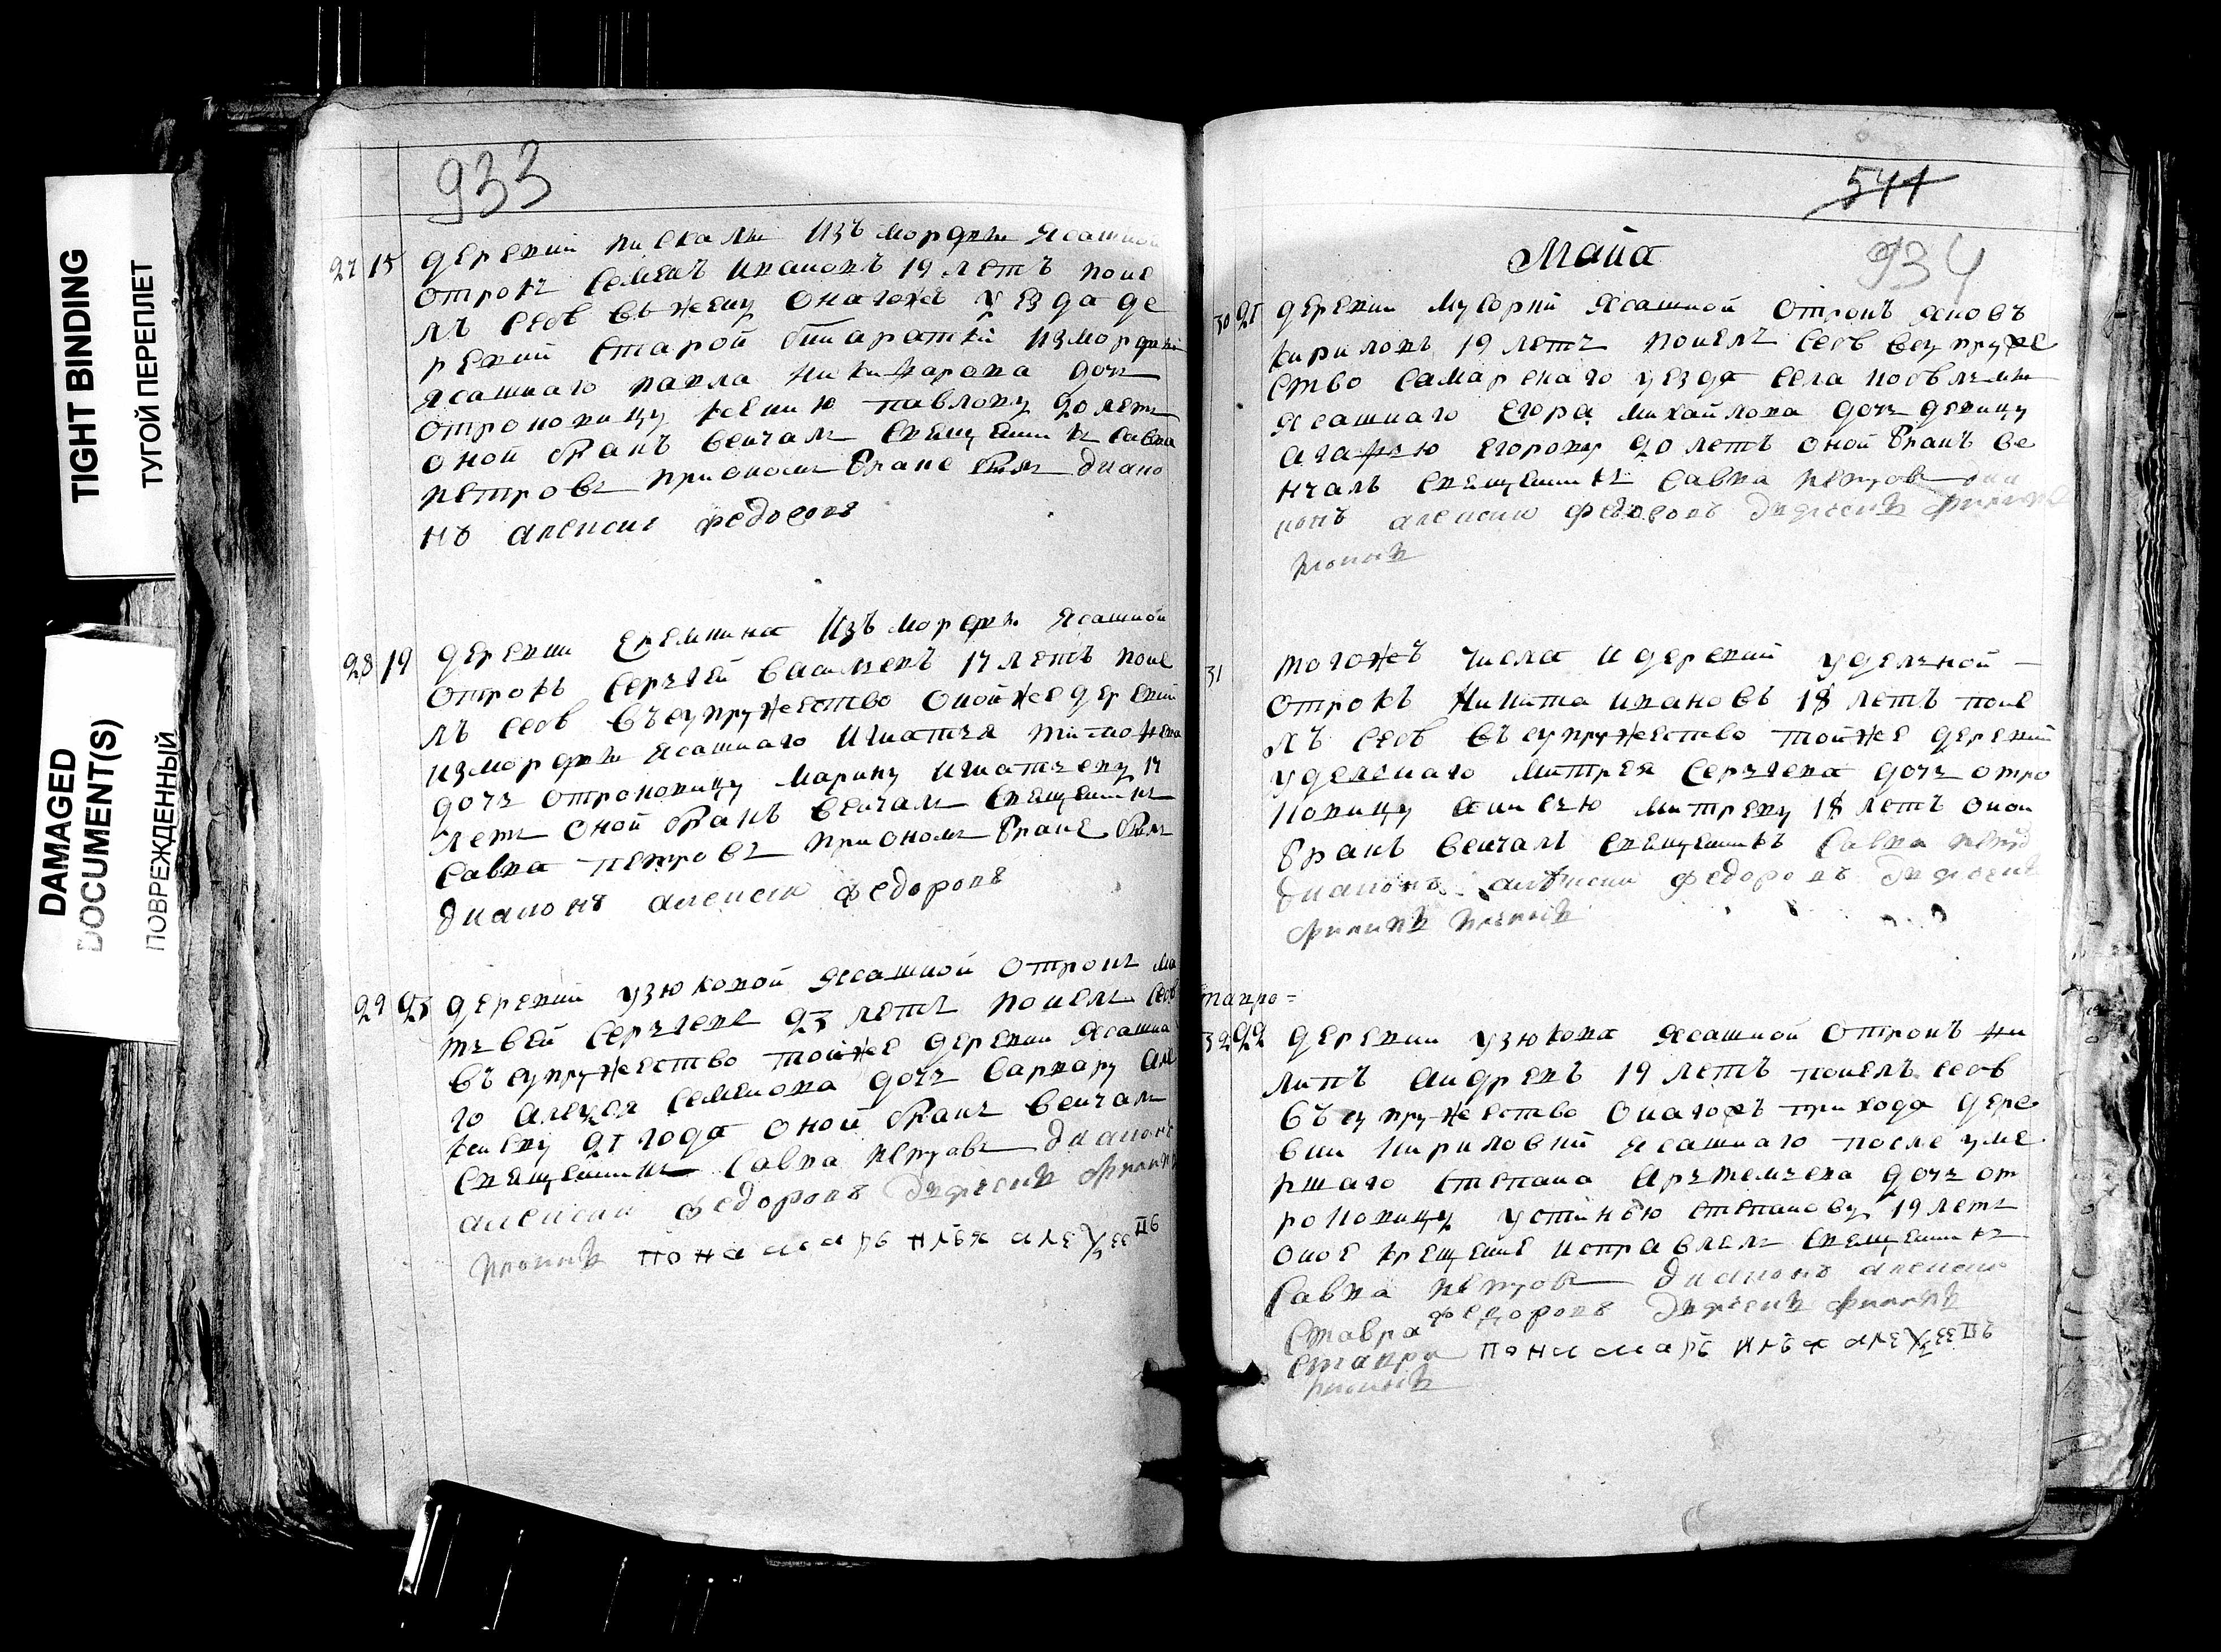 TIGHT BINDING
ТУГОЙ ПЕРЕПЛЕТ
DAMAGED
DOCUMENT(S)
ПОВРЕЖДЕННЫЙ
933
27 15 деревни пискалы изъ мордвы ясашной
отрокъ Семенъ ивановъ 19 летъ поне
лъ себѣ въ жену онагожъ уезда де
ревни Старой измордвы
ясашнаго павла никифарова дочь
отроковицу ксению павлову 20 летъ
оной бракъ венчалъ священникъ савва
петровъ приономъ браке былъ диако
нъ алексие федоровъ
28 19 деревни еремкина изъ мордвы ясашной
отрокъ Сергей васильевъ 17 летъ поне
лъ себѣ въ супружество онойже деревни
измордвы ясашнаго игнатья тимофеева
дочь отроковицу марину игнатьеву 17
летъ оной бракъ венчалъ священникъ
савва петровъ приономъ браке былъ
диаконъ алексие федоровъ
29 23 деревни узюковой ясашной отрокъ ма
тьвей сергеевъ 23 летъ понелъ себѣ
въ супружество тойже деревни ясашна
го алексея семенова дочь варвару але
ксеву 21 года оной бракъ венчалъ
священникъ савва петровъ диаконъ
алексие федоровъ
пономарь илья алеѯеевъ
541
934
Майа
30 21 деревни мусорки ясашной отрокъ яковъ
кириловъ 19 летъ понелъ себѣ всупруже
ство самарскаго уезда села
ясашнаго егора михайлова дочь девицу
агафью егорову 20 летъ оной бракъ ве
нчалъ священникъ савва петровъ диа
конъ алексие федоровъ
31 тогожъ числа и деревни уделной
отрокъ никита ивановъ 18 летъ поне
лъ себѣ въ супружество тойже деревни
уделснаго митрея сергеева дочь отро
ковицу анисью митреву 18 летъ оной
бракъ венчалъ священникъ савва петро
диаконъ алексие федоровъ
32 22 деревни узюкова ясашной отрокъ фи
липъ андревъ 19 летъ понелъ себѣ
въ супружество онагожъ прихода дере
вни кириловки ясашнаго после уме
ршаго степана артемьева дочь от
роковицу устинью степанову 19 летъ
оное крещение исправлялъ священникъ
савва петровъ диаконъ алексие
федоровъ
ставра
пономарь илья алеѯеевъ